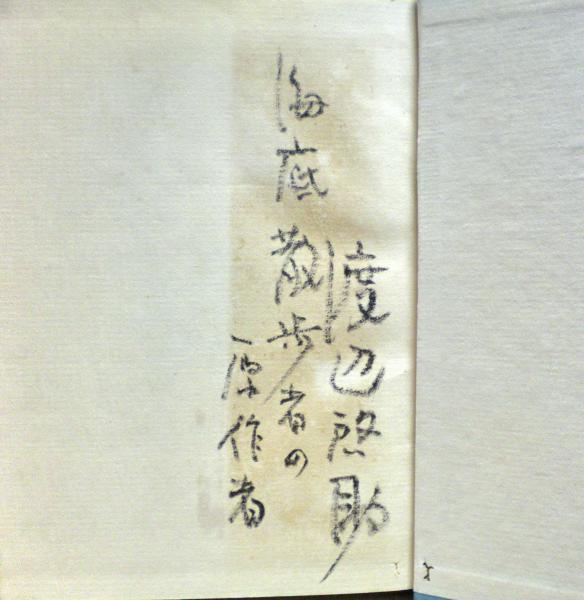 渡辺啓助
海底散歩者の
原作者